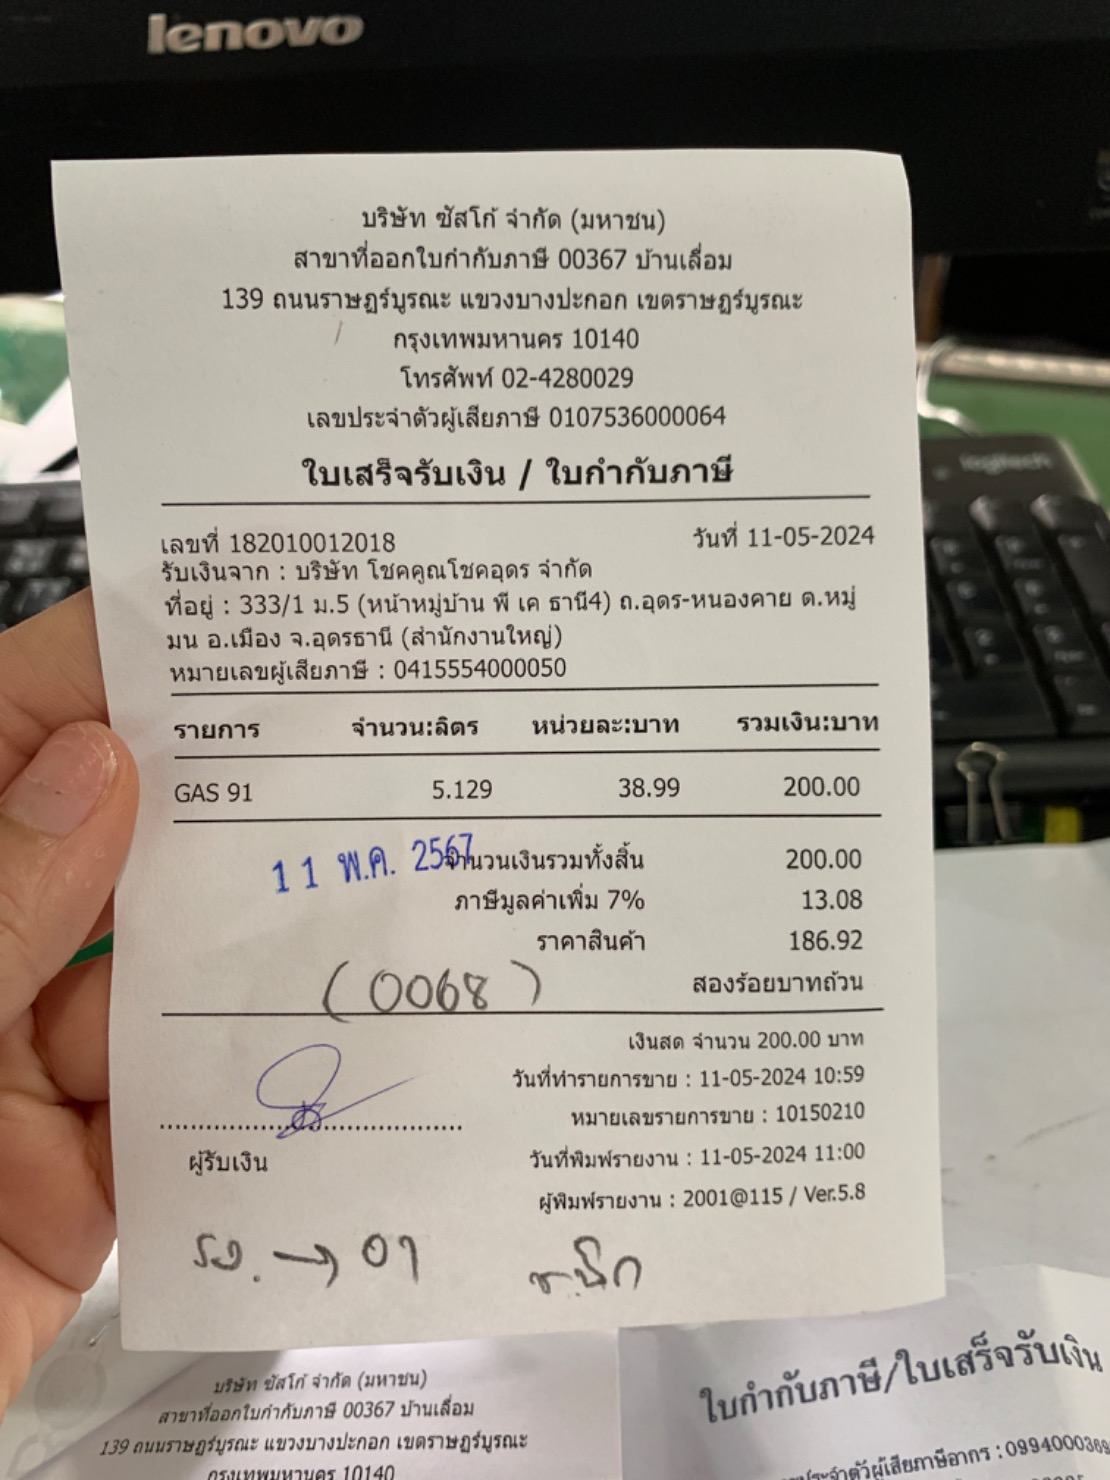 lenovo
บริษัท ซัสโก้ จำกัด (มหาชน)
สาขาที่ออกใบกำกับภาษี 00367 บ้านเลื่อม
139 ถนนราษฎร์บูรณะ แขวงบางปะกอก เขตราษฎร์บูรณะ
กรุงเทพมหานคร 10140
โทรศัพท์ 02-4280029
เลขประจำตัวผู้เสียภาษี 0107536000064
ใบเสร็จรับเงิน / ใบกำกับภาษี
logitech
เลขที่ 182010012018 วันที่ 11-05-2024
รับเงินจาก : บริษัท โชคคูณโชคอุดร จำกัด
ที่อยู่ : 333/1 ม.5 (หน้าหมู่บ้าน พี เค ธานี4) ถ.อุดร-หนองคาย ต.หมู่
มน อ.เมือง จ.อุดรธานี (สำนักงานใหญ่)
หมายเลขผู้เสียภาษี : 0415554000050
รายการ จำนวน:ลิตร หน่วยละ:บาท รวมเงิน:บาท
GAS 91 5.129 38.99 200.00
11 พ.ค. 2567
จำนวนเงินรวมทั้งสิ้น 200.00
ภาษีมูลค่าเพิ่ม 7% 13.08
ราคาสินค้า 186.92
(0068)
สองร้อยบาทถ้วน
เงินสด จำนวน 200.00 บาท
วันที่ทำรายการขาย : 11-05-2024 10:59
หมายเลขรายการขาย : 10150210
ผู้รับเงิน
วันที่พิมพ์รายงาน : 11-05-2024 11:00
ผู้พิมพ์รายงาน : 2001@115 / Ver.5.8
→ 01
บริษัท ซัสโก้ จำกัด (มหาชน)
สาขาที่ออกใบกำกับภาษี 00367 บ้านเลื่อม
139 ถนนราษฎร์บูรณะ แขวงบางปะกอก เขตราษฎร์บูรณะ
กรุงเทพมหานคร 10140
ใบกำกับภาษี/ใบเสร็จรับเงิน